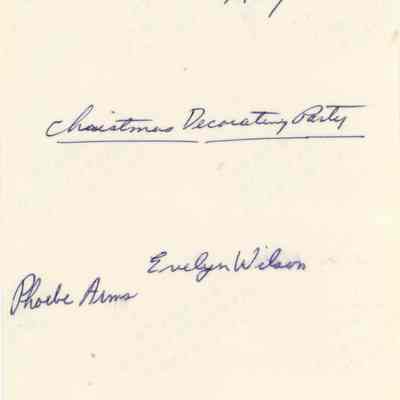 Christmas Decorating Party
Evelyn Wilson
Phoebe Arms